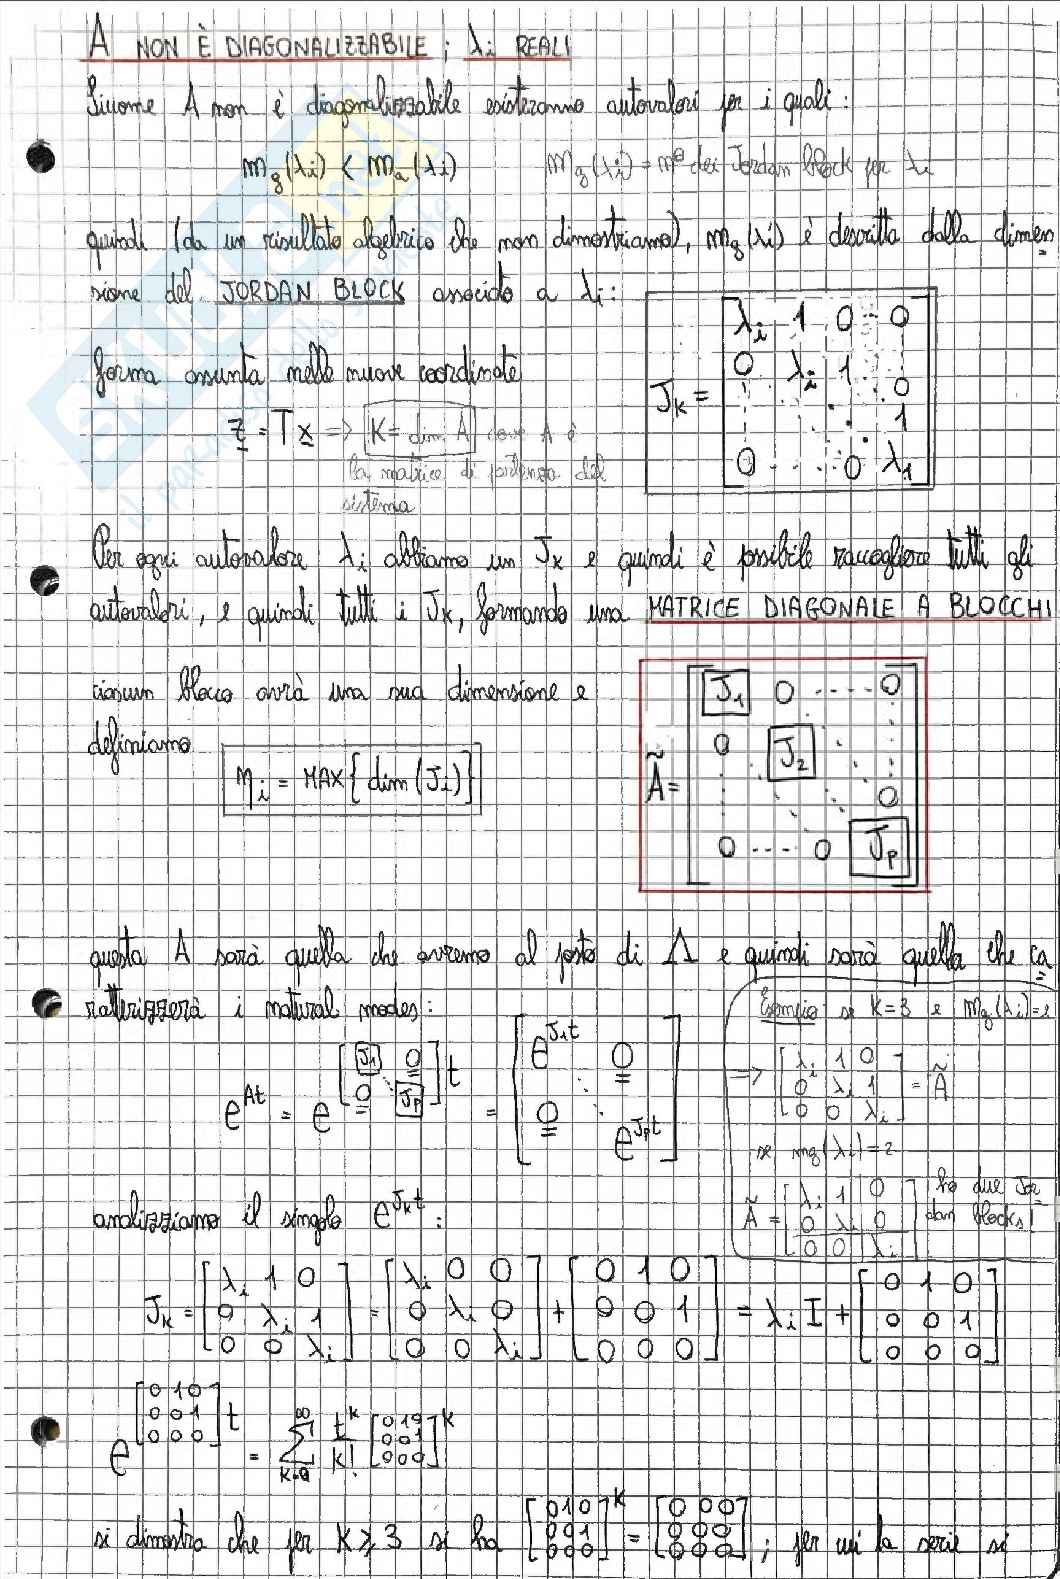 A NON È DIAGONALIZZABILE ; λi REALI
Siccome A non è diagonalizzabile esisteranno autovalori per i quali :
mg(λi) < ma(λi)    mg(λi) = n° dei Jordan block per λi
quindi (da un risultato algebrico che non dimostriamo), mg(λi) è descritta dalla dimen
sione del JORDAN BLOCK associato a λi :
forma assunta nelle nuove coordinate
z = T x => K = dim A dove A è
la matrice di potenza del
sistema
Jk = [ λi 1 0 -- 0
0 λi 1 0
1
0 .... 0 λ1 ]
Per ogni autovalore λi abbiamo un Jk e quindi è possibile raccogliere tutti gli
autovalori, e quindi tutti i Jk, formando una MATRICE DIAGONALE A BLOCCHI
ciascun blocco avrà una sua dimensione e
definiamo
ηi = MAX{ dim (Ji) }
Ã = [ J1 0 ---- 0
0 J2
0
0 ---- 0 Jp ]
questa A sarà quella che avremo al posto di Λ e quindi sarà quella che ca
ratterizzerà i natural modes :
e^At = e^[ J1 0
0 Jp ] t = [ e^J1t 0
0 e^Jpt ]
Esempio se K=3 e mg(λi)=1
=> [ λi 1 0
0 λi 1
0 0 λi ] = Ã
se mg(λi)=2
Ã = [ λi 1 0
0 λi 0
0 0 λi ] ho due Jor
dan blocks!
analizziamo il singolo e^Jkt :
Jk = [ λi 1 0
0 λi 1
0 0 λi ] = [ λi 0 0
0 λi 0
0 0 λi ] + [ 0 1 0
0 0 1
0 0 0 ] = λi I + [ 0 1 0
0 0 1
0 0 0 ]
e^[ 0 1 0
0 0 1
0 0 0 ] t = Σ k=0 ∞ t^k / k! [ 0 1 0
0 0 1
0 0 0 ]^k
si dimostra che per K ⩾ 3 si ha [ 0 1 0
0 0 1
0 0 0 ]^K = [ 0 0 0
0 0 0
0 0 0 ] ; per cui la serie si